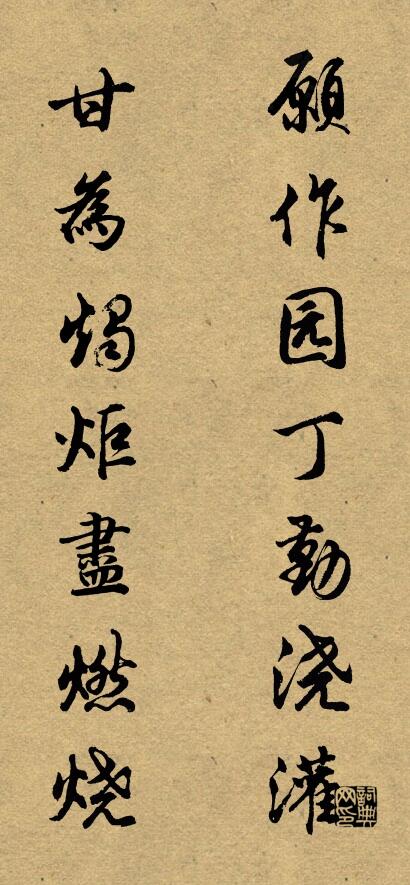 願作园丁勤浇灌
甘為燭炬盡燃烧
詞典网印